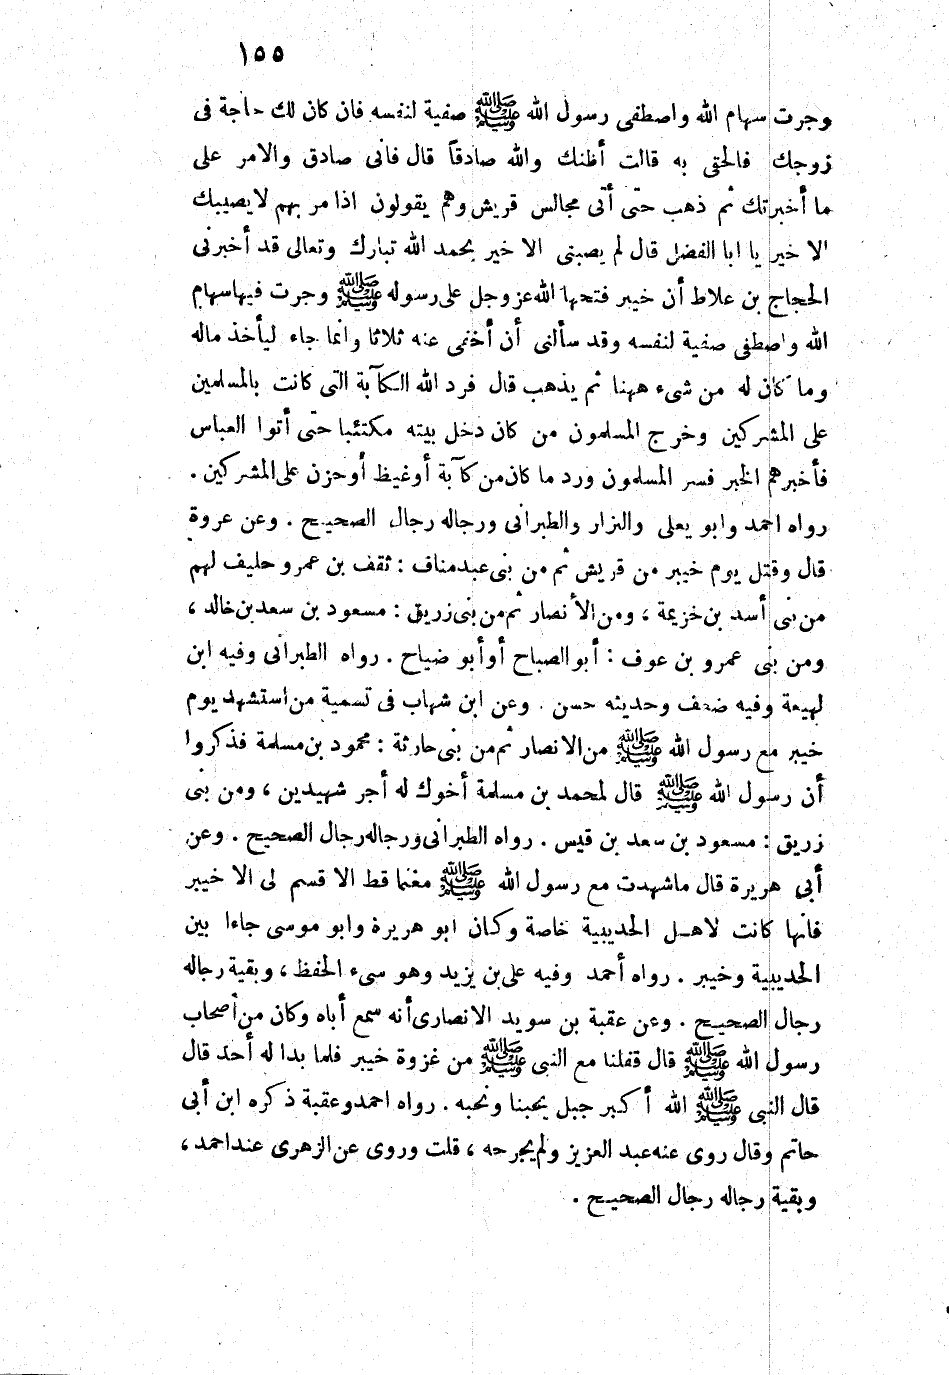 ١٥٥
وجرت سهام الله واصطفى رسول الله ﷺ صفية لنفسه فان كان لك حاجة فى
زوجك فالحقى به قالت أظنك والله صادقاً قال فانى صادق والامر على
ما أخبرتك ثم ذهب حتى أتى مجالس قريش وهم يقولون اذا مر بهم لايصيبك
الا خير يا ابا الفضل قال لم يصبنى الا خير بحمد الله تبارك وتعالى قد أخبرنى
الحجاج بن علاط أن خيبر فتحها الله عز وجل على رسوله ﷺ وجرت فيها سهام
الله واصطفى صفية لنفسه وقد سألنى أن أخفى عنه ثلاثا وانما جاء ليأخذ ماله
وما كان له من شىء ههنا ثم يذهب قال فرد الله الكآبة التى كانت بالمسلمين
على المشركين وخرج المسلمون من كان دخل بيته مكتئبا حتى أتوا العباس
فأخبرهم الخبر فسر المسلمون ورد ما كان من كآبة أو غيظ أو حزن على المشركين .
رواه احمد وابو يعلى والبزار والطبرانى ورجاله رجال الصحيح . وعن عروة
قال وقتل يوم خيبر من قريش ثم من بنى عبد مناف : ثقف بن عمرو حليف لهم
من بنى أسد بن خزيمة ، ومن الأنصار ثم من بنى زريق : مسعود بن سعد بن خالد ،
ومن بنى عمرو بن عوف : أبو الصباح أو أبو ضياح . رواه الطبرانى وفيه ابن
لهيعة وفيه ضعف وحديثه حسن . وعن ابن شهاب فى تسمية من استشهد يوم
خيبر مع رسول الله ﷺ من الانصار ثم من بنى حارثة : محمود بن مسلمة فذكروا
أن رسول الله ﷺ قال لمحمد بن مسلمة أخوك له أجر شهيدين ، ومن بنى
زريق : مسعود بن سعد بن قيس . رواه الطبرانى ورجاله رجال الصحيح . وعن
أبي هريرة قال ماشهدت مع رسول الله ﷺ مغنما قط الا قسم لى الا خيبر
فانها كانت لاهل الحديبية خاصة وكان ابو هريرة وابو موسى جاءا بين
الحديبية وخيبر . رواه أحمد وفيه على بن يزيد وهو سىء الحفظ ، وبقية رجاله
رجال الصحيح . وعن عقبة بن سويد الانصارى أنه سمع أباه وكان من أصحاب
رسول الله ﷺ قال قفلنا مع النبى ﷺ من غزوة خيبر فلما بدا له أحد قال
قال النبى ﷺ الله أكبر جبل يحبنا ونحبه . رواه احمد وعقبة ذكره ابن أبى
حاتم وقال روى عنه عبد العزيز ولم يجرحه ، قلت وروى عن الزهرى عند احمد ،
وبقية رجاله رجال الصحيح .